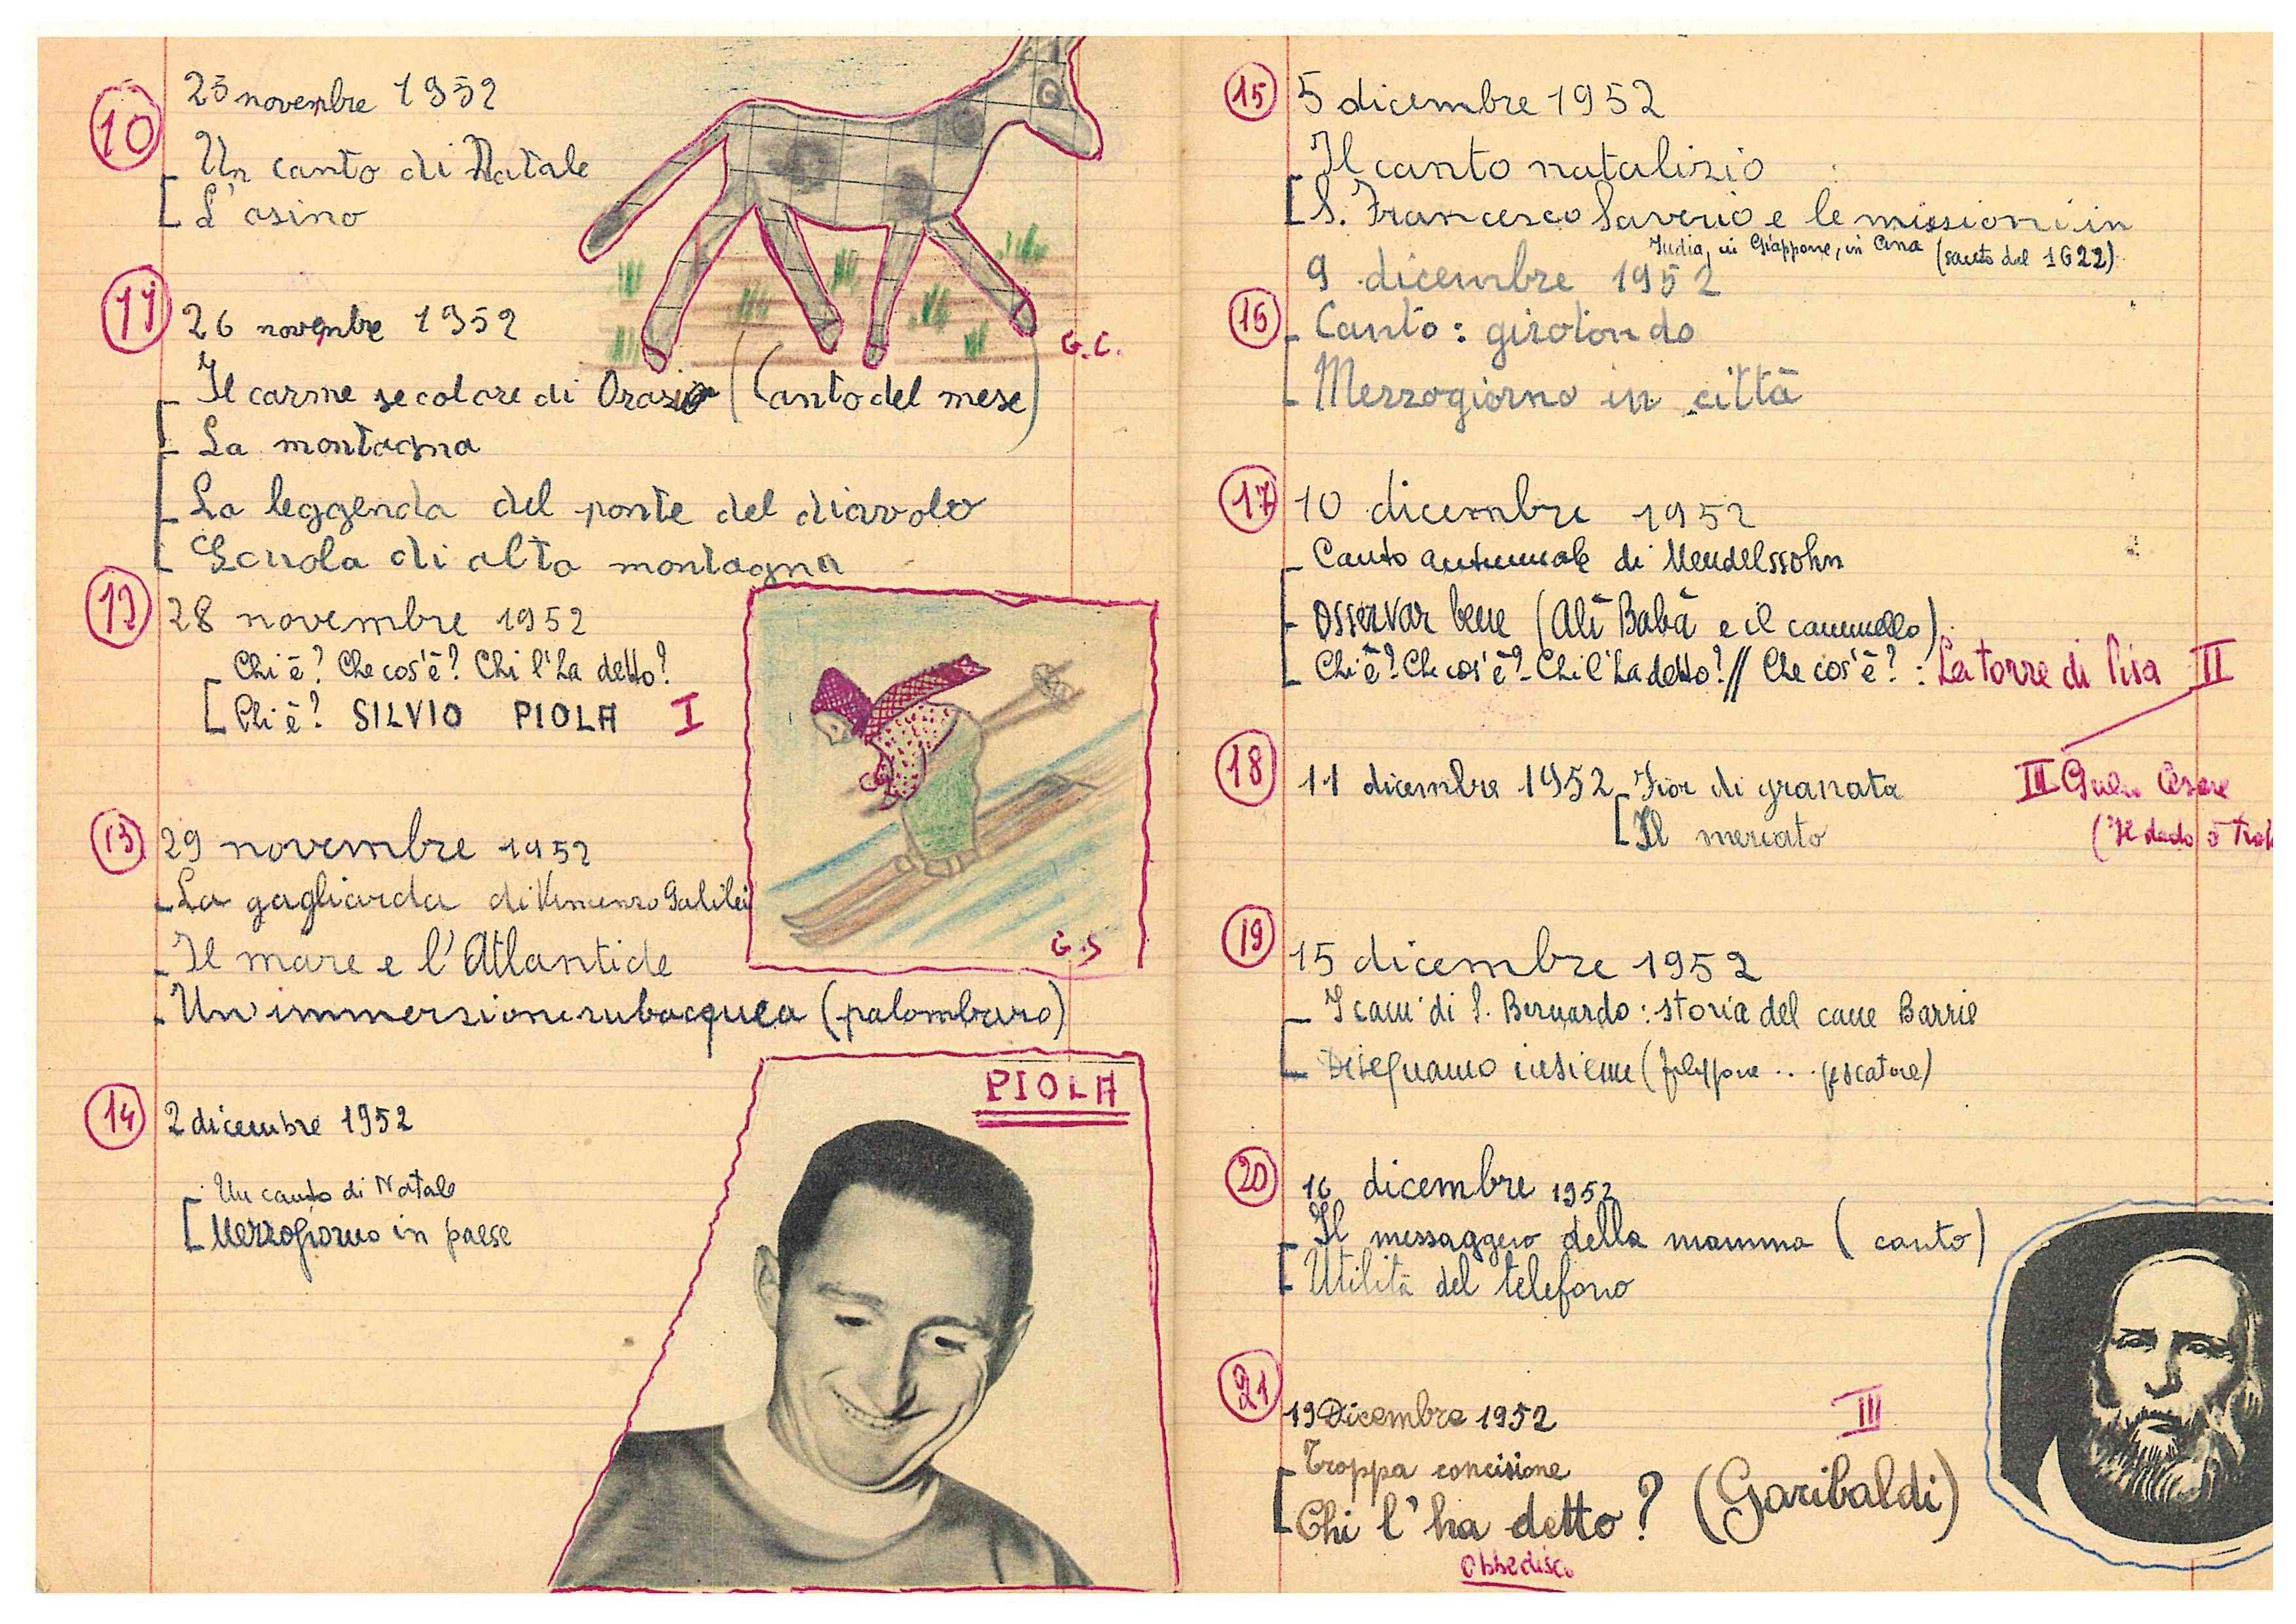 10
25 novembre 1952
Un canto di Natale
L'asino
G.C.
11
26 novembre 1952
Il carme secolare di Orazio (Canto del mese)
La montagna
La leggenda del ponte del diavolo
Scuola di alta montagna
12
28 novembre 1952
Chi è? Che cos'è? Chi l'ha detto?
Chi è? SILVIO PIOLA I
G.S
13
29 novembre 1952
La gagliarda di Vincenzo Galilei
Il mare e l'Atlantide
Un'immersione subacquea (palombaro)
PIOLA
14
2 dicembre 1952
Un canto di Natale
Mezzogiorno in paese
15
5 dicembre 1952
Il canto natalizio
S. Francesco Saverio e le missioni in
India, in Giappone, in Cina (santo dal 1622)
9 dicembre 1952
16
Canto: girotondo
Mezzogiorno in città
17
10 dicembre 1952
Canto autunnale di Mendelssohn
Osservar bene (Alì Babà e il cammello)
Chi è? Che cos'è? Chi l'ha detto? // Che cos'è?: La torre di Pisa II
18
11 dicembre 1952 Fior di granata
III Cesare
Il mercato
(Il dado è
19
15 dicembre 1952
I cani di S. Bernardo: storia del cane Barrie
Disegnamo insieme ( ... pescatore)
20
16 dicembre 1952
Il messaggero della mamma (canto)
Utilità del telefono
21
19 Dicembre 1952
III
Troppa concisione
Chi l'ha detto? (Garibaldi)
Obbedisco